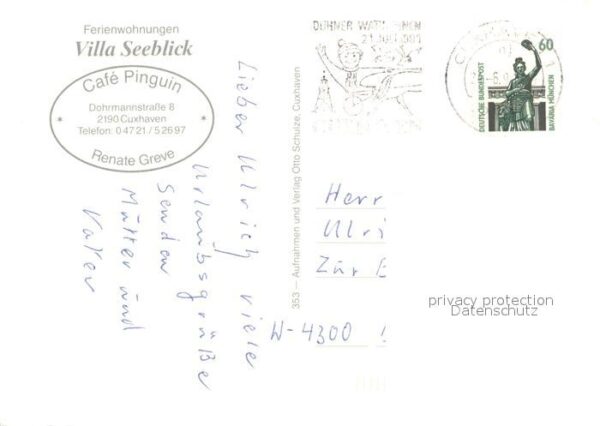 Ferienwohnungen
Villa Seeblick
Café Pinguin
Dohrmannstraße 8
2190 Cuxhaven
Telefon: 0 47 21 / 5 26 97
Renate Greve
Lieber Ulrich viele
Urlaubsgrüße
senden
Mutter und
Vater
353 — Aufnahmen und Verlag Otto Schulze, Cuxhaven
DUHNER
60
DEUTSCHE BUNDESPOST
BAVARIA MÜNCHEN
Herr
Ulri
Zur E
W-4300
privacy protection
Datenschutz